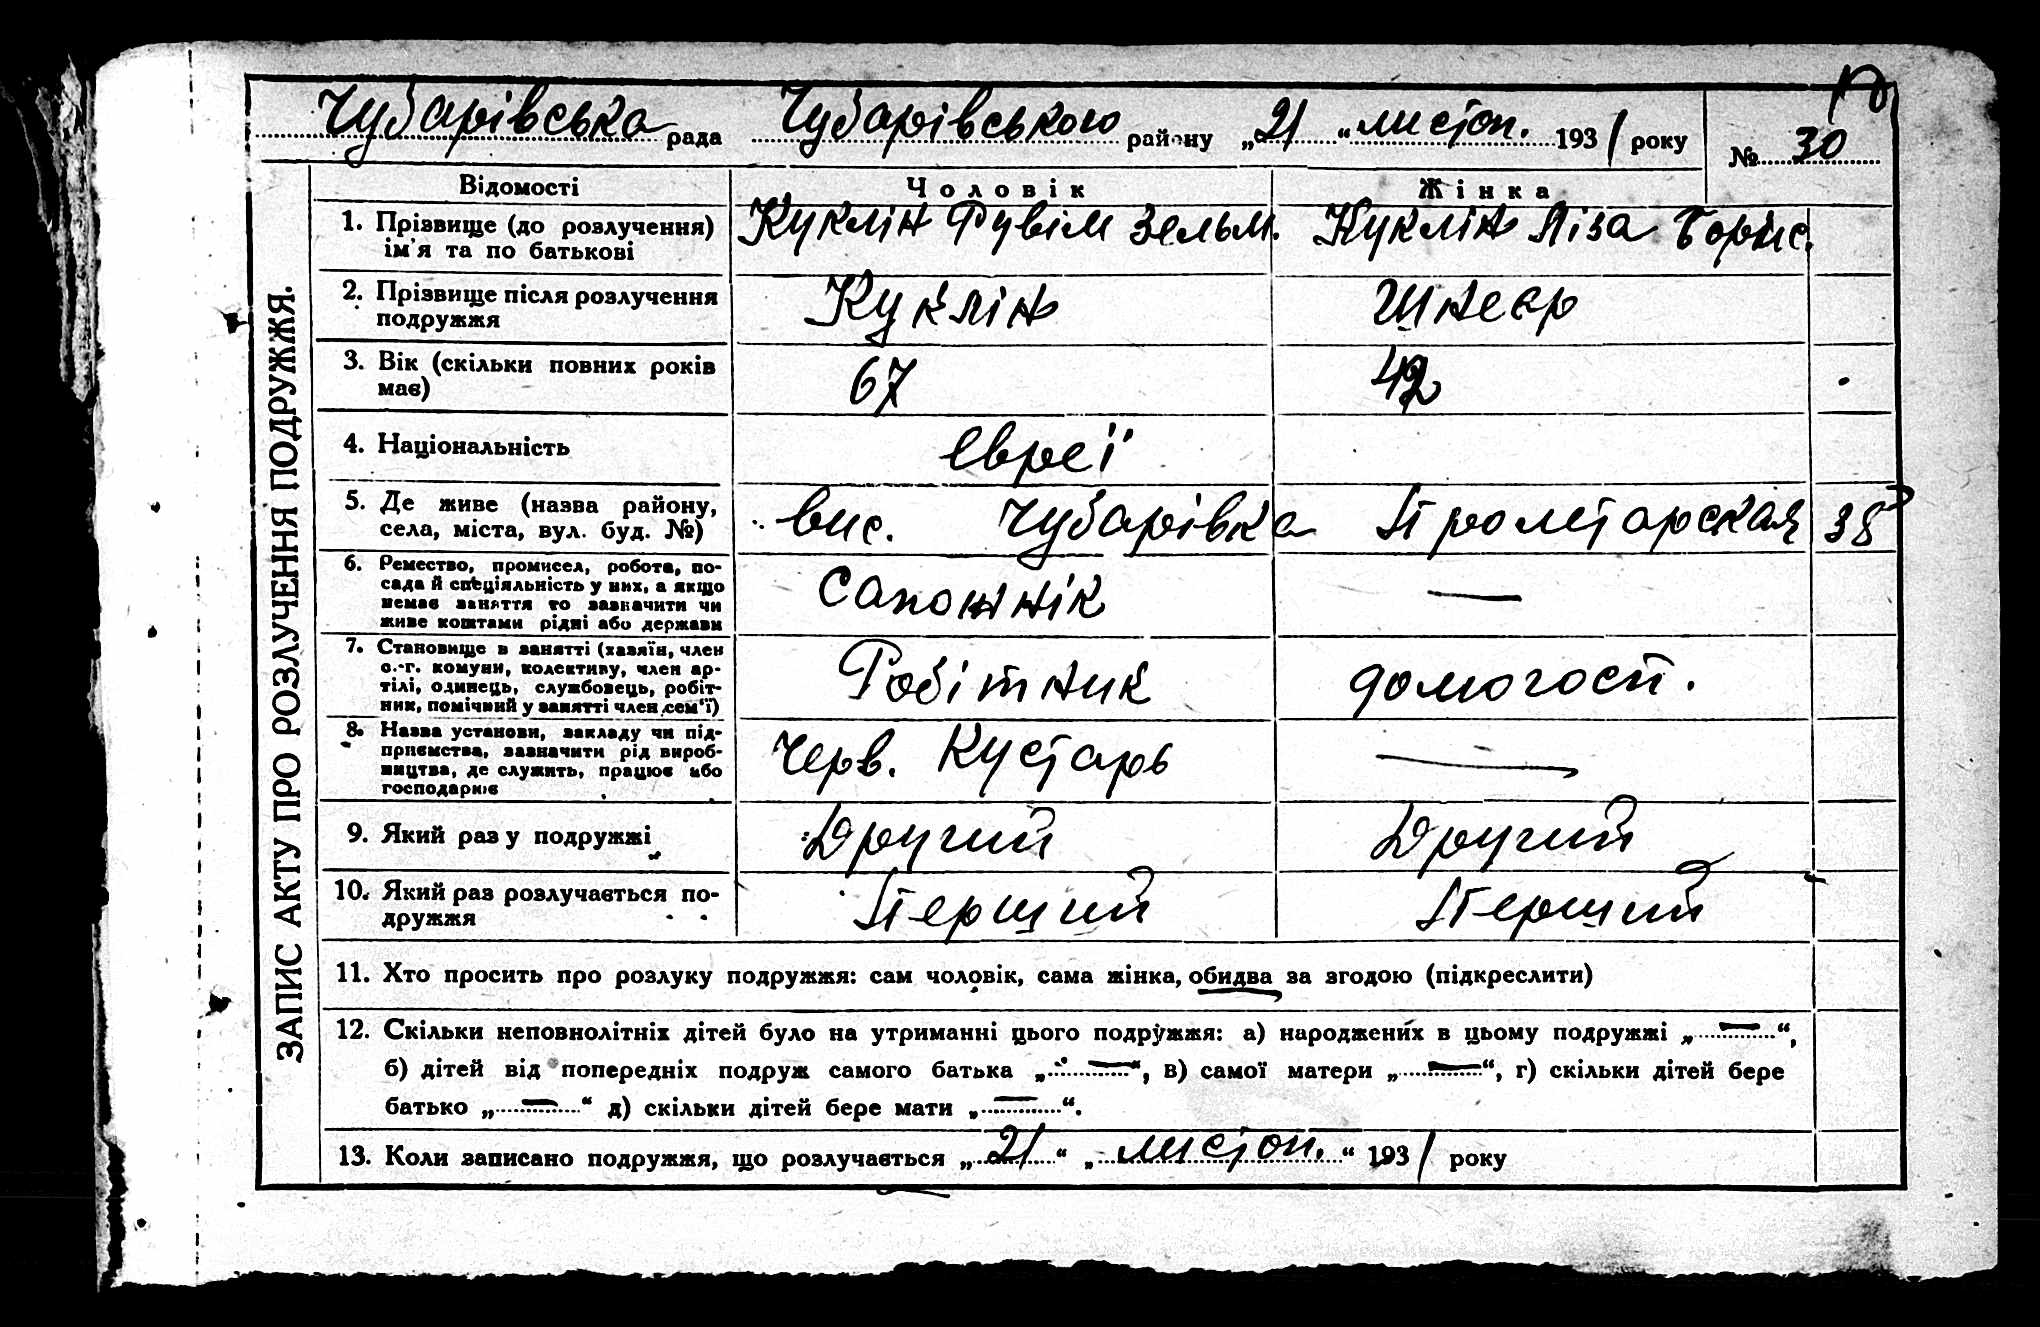 Чубарівська рада Чубарівського району „21“ „листоп. 1931 року № 30
ЗАПИС АКТУ ПРО РОЗЛУЧЕННЯ ПОДРУЖЖЯ.
Відомості Чоловік Жінка
1. Прізвище (до розлучення) ім'я та по батькові Куклін Рувім Зельм. Куклін Ліза Борис.
2. Прізвище після розлучення подружжя Куклін Шнеар
3. Вік (скільки повних років має) 67 42
4. Національність євреї
5. Де живе (назва району, села, міста, вул. буд. №) вис. Чубарівка Пролетарская 38
6. Ремество, промисел, робота, посада й спеціяльність у них, а якщо немає заняття то зазначити чи живе коштами рідні або держави Сапожнік —
7. Становище в занятті (хазяїн, член о.-г. комуни, колективу, член артілі, одинець, службовець, робітник, помічний у занятті член сем'ї) Робітник домогосп.
8. Назва установи, закладу чи підприємства, зазначити рід виробництва, де служить, працює або господарює Черв. Кустарь —
9. Який раз у подружжі Другий Другий
10. Який раз розлучається подружжя Перший Перший
11. Хто просить про розлуку подружжя: сам чоловік, сама жінка, обидва за згодою (підкреслити)
12. Скільки неповнолітніх дітей було на утриманні цього подружжя: а) народжених в цьому подружжі „—“,
б) дітей від попередніх подруж самого батька „—“, в) самої матери „—“, г) скільки дітей бере
батько „—“ д) скільки дітей бере мати „—“.
13. Коли записано подружжя, що розлучається „21“ „листоп.“ 1931 року